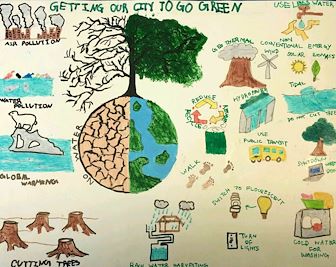 GETTING OUR CITY TO GO GREEN
AIR POLLUTION
WATER
POLLUTION
GLOBAL
WARMING
CUTTING TREES
NO WATER
GEOTHERMAL
REDUCE
HYDROPOWER
WALK
SWITCH TO FLUORESCENT
TURN OF
LIGHTS
RAIN WATER HARVESTING
USE
WATER
NON
CONVENTIONAL ENERGY
WIND
SOLAR ENERGY
TIDAL
DO NOT CUT TREES
USE
PUBLIC TRANSIT
SHUTDOWN
COLD WATER
FOR
WASHING